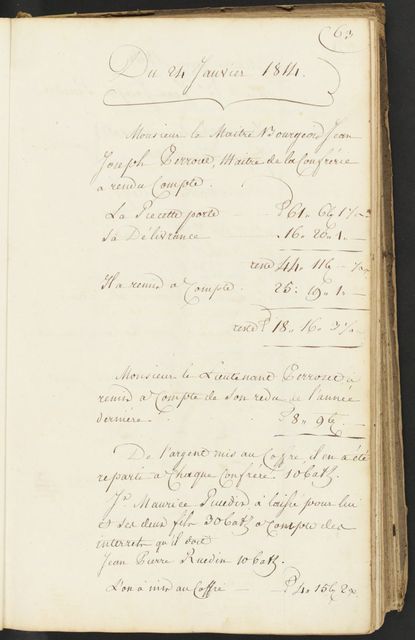 63
Du 24 Janvier 1814.
Monsieur le Maitre Bourgeois Jean
Joseph Perroud, Maitre de la Confrérie
a rendu Compte.
La Recette porte 61„ 6
Sa Délivrance 16„ 20„ 1„ —
reste 44„ 11
Il a remis a Compte 25: 19„ 1„ —
reste 18„ 16„
Monsieur le Lieutenant Perroud a
remis a Compte de son redu de l'année
derniere 8„ 9
De l'argent mis au Coffre il en a été
reparti a Chaque Confrére 10 batz.
Js. Maurice Ruedin à laissé pour lui
et ses deux fils 30 batz a Compte des
interrets qu'il doit
Jean Pierre Ruedin 10 batz.
L'on a mis au Coffre — 4„ 15